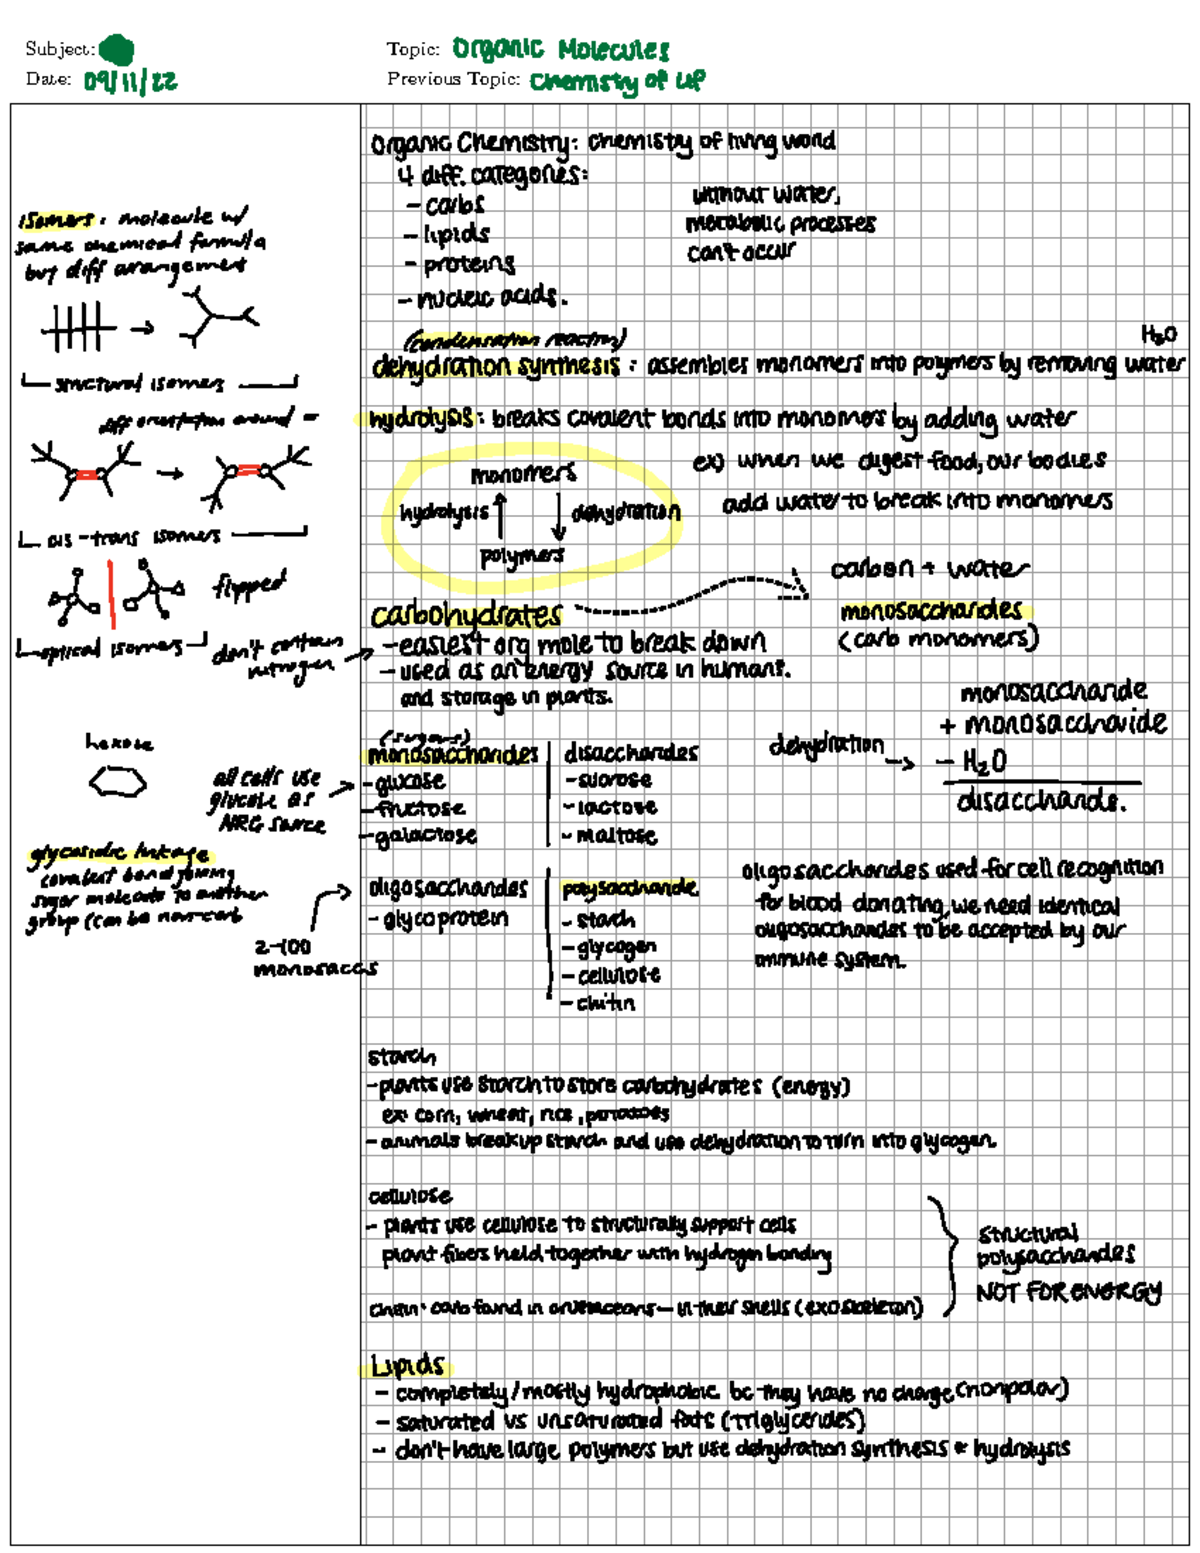 Subject:
Topic: Organic Molecules
Date: 09/11/22
Previous Topic: Chemistry of Life
Organic Chemistry: chemistry of living world
4 diff. categories:
- carbs
- lipids
- proteins
- nucleic acids.
without water,
metabolic processes
can't occur
isomers: molecule w/
same chemical formula
but diff arangement
structural isomers
diff orientation around =
cis-trans isomers
flipped
optical isomers
(condensation reaction)
H₂O
dehydration synthesis: assembles monomers into polymers by removing water
hydrolysis: breaks covalent bonds into monomers by adding water
monomers
hydrolysis
dehydration
polymers
ex) when we digest food, our bodies
add water to break into monomers
carbohydrates
carbon + water
monosaccharides
(carb monomers)
don't contain
nitrogen
- easiest org mole to break down
- used as an energy source in humans.
and storage in plants.
monosaccharide
+ monosaccharide
dehydration
- H₂O
disaccharide.
hexose
all cells use
glucose as
NRG source
(sugars)
monosaccharides
- glucose
- fructose
- galactose
disaccharides
- sucrose
- lactose
- maltose
glycosidic linkage
covalent bond joining
sugar molecule to another
group (can be non-carb
2-100
monosaccs
oligosaccharides
- glycoprotein
polysaccharide
- starch
- glycogen
- cellulose
- chitin
oligosaccharides used for cell recognition
for blood donating, we need identical
oligosaccharides to be accepted by our
immune system.
starch
- plants use starch to store carbohydrates (energy)
ex: corn, wheat, rice, potatoes
- animals break up starch and use dehydration to turn into glycogen.
cellulose
- plants use cellulose to structurally support cells
plant fibers held together with hydrogen bonding
chitin: carb found in crustaceans - in their shells (exoskeleton)
structural
polysaccharides
NOT FOR ENERGY
Lipids
- completely/mostly hydrophobic bc they have no charge (nonpolar)
- saturated vs unsaturated fats (triglycerides)
- don't have large polymers but use dehydration synthesis + hydrolysis